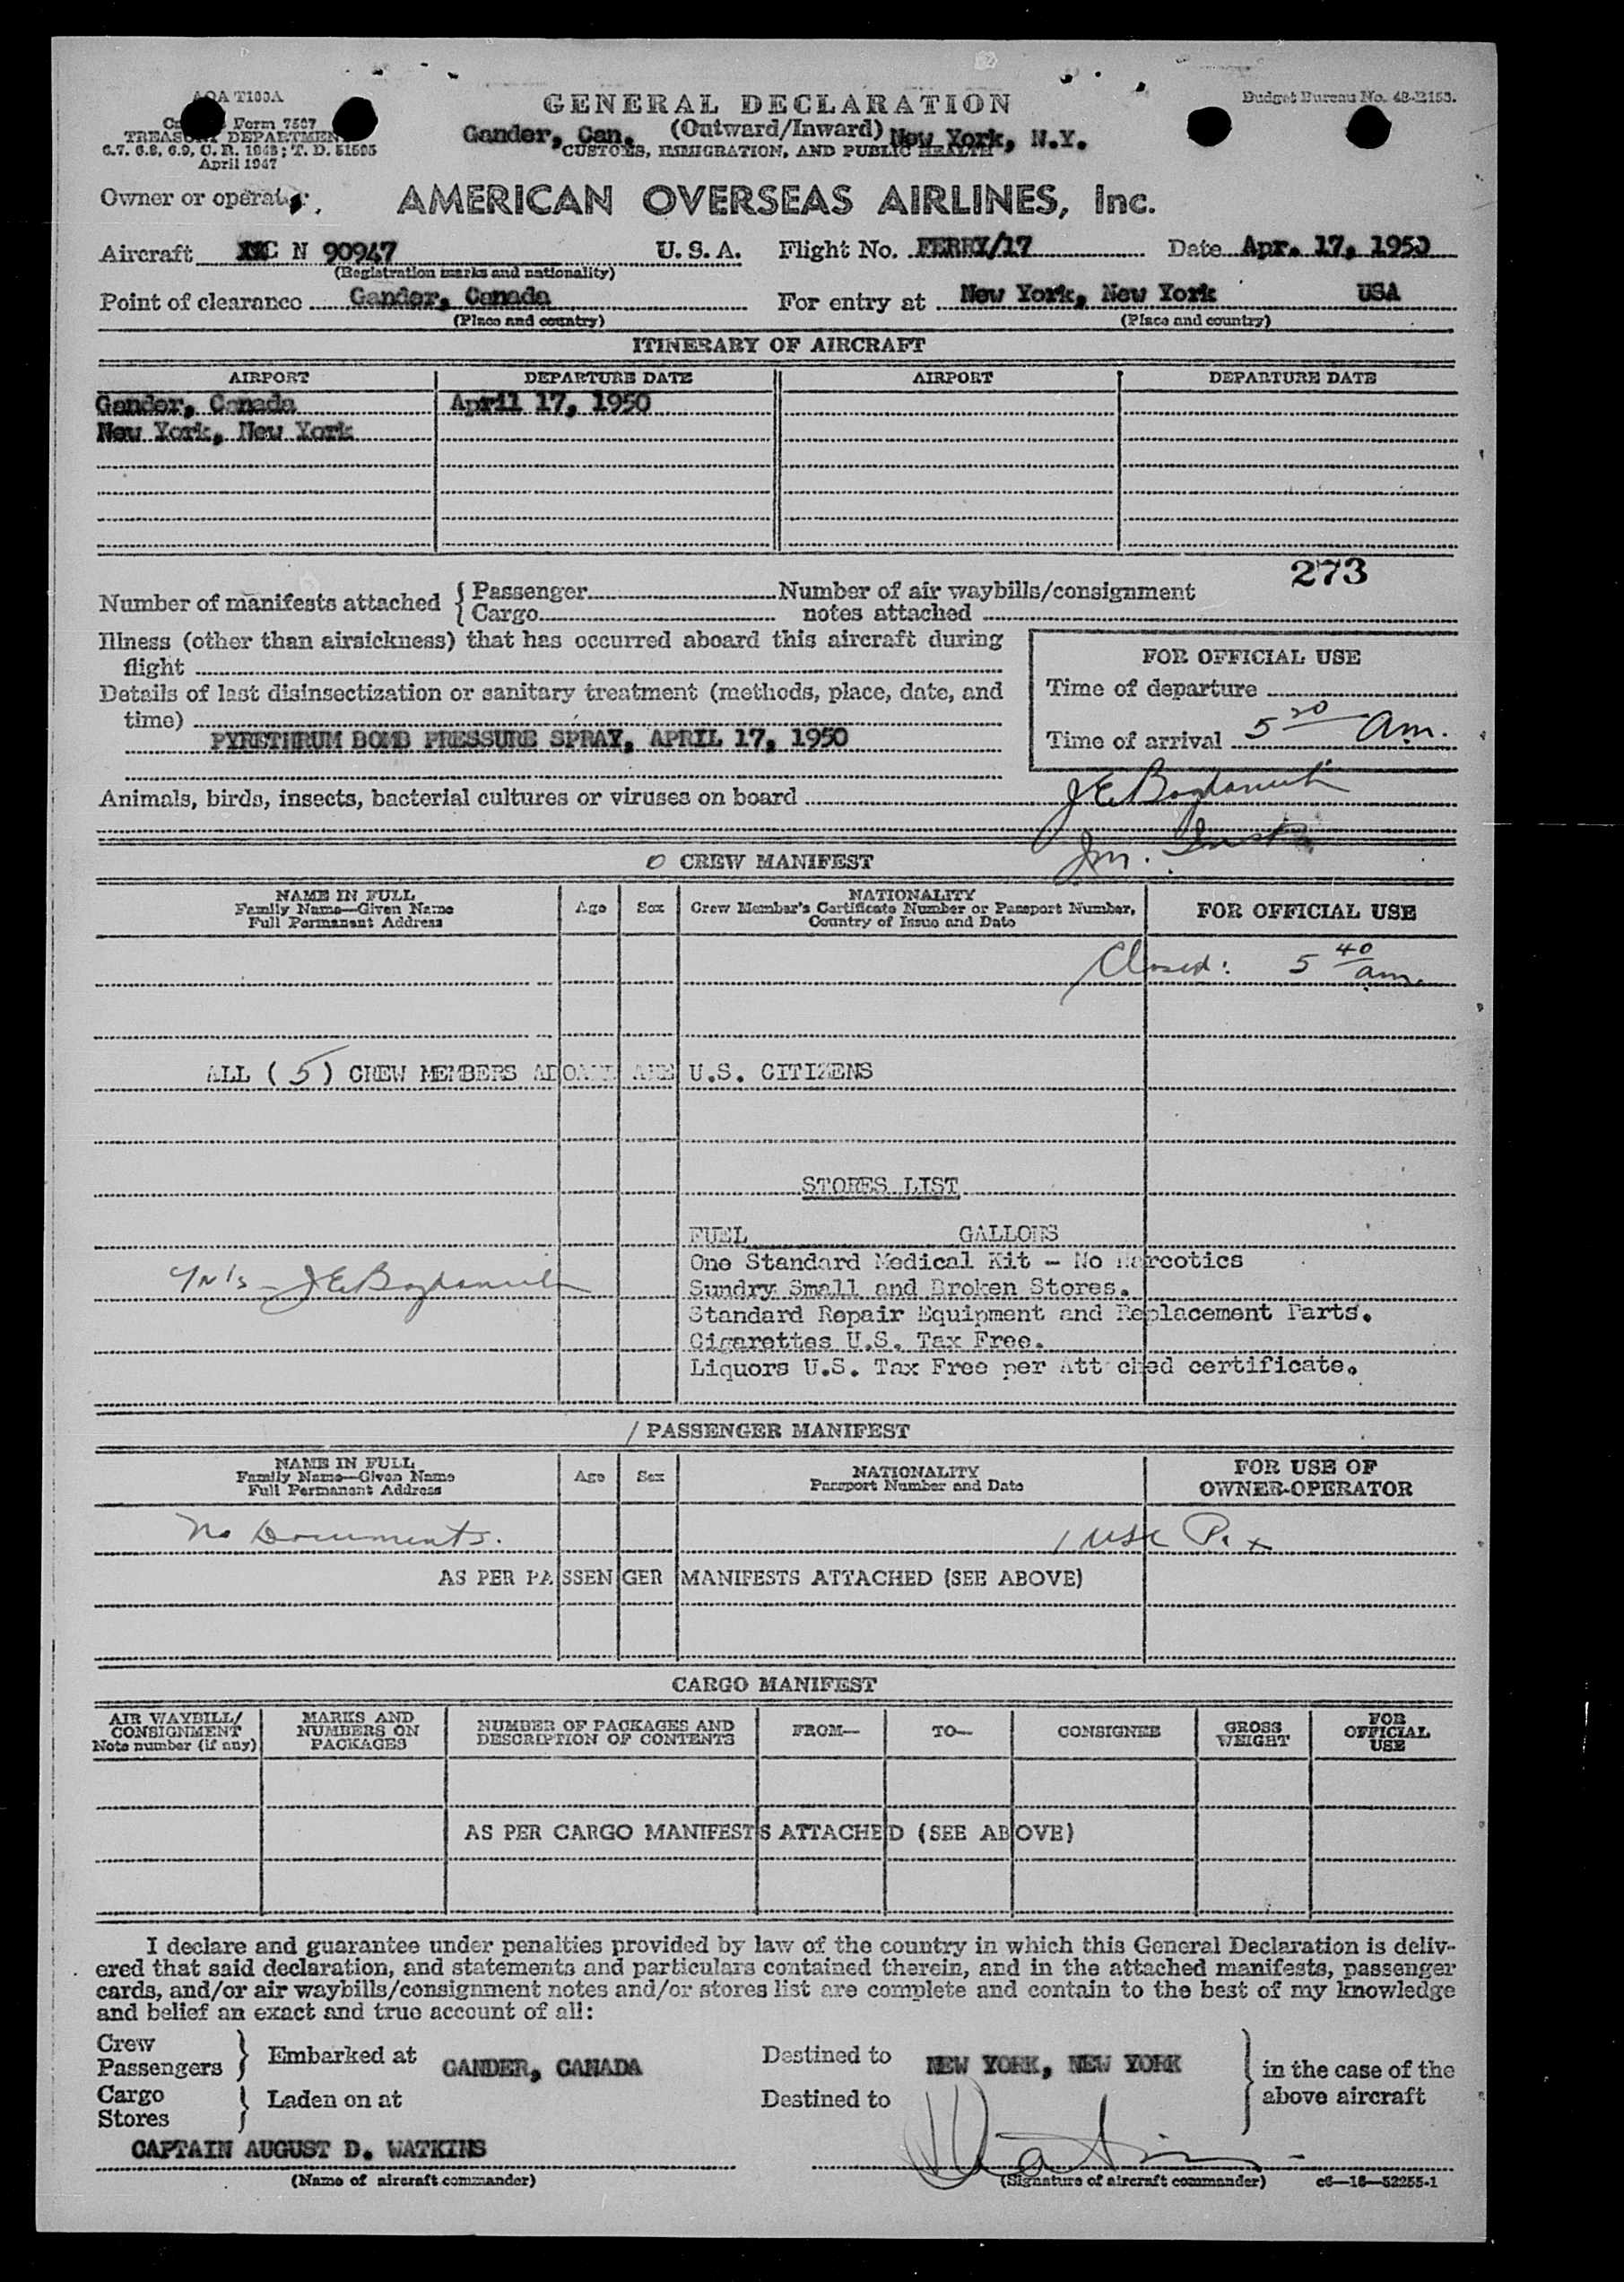 AOA T100A
Form 7507
TREASURY DEPARTMENT
6.7, 6.8, 6.9, C. R. 1943; T. D. 51595
April 1947
GENERAL DECLARATION
Budget Bureau No. 48-R153.
(Outward/Inward)
Gander, Can. New York, N.Y.
CUSTOMS, IMMIGRATION, AND PUBLIC HEALTH
Owner or operator,
AMERICAN OVERSEAS AIRLINES, Inc.
Aircraft C N 90947 U. S. A. Flight No. FERRY/17 Date Apr. 17, 1950
(Registration marks and nationality)
Point of clearance Gander, Canada For entry at New York, New York USA
(Place and country) (Place and country)
ITINERARY OF AIRCRAFT
AIRPORT DEPARTURE DATE AIRPORT DEPARTURE DATE
Gander, Canada April 17, 1950
New York, New York
273
Number of manifests attached { Passenger Number of air waybills/consignment
Cargo notes attached
Illness (other than airsickness) that has occurred aboard this aircraft during
flight
Details of last disinsectization or sanitary treatment (methods, place, date, and
time)
PYRETHRUM BOMB PRESSURE SPRAY, APRIL 17, 1950
FOR OFFICIAL USE
Time of departure
Time of arrival 5 20 am.
Animals, birds, insects, bacterial cultures or viruses on board
Im. Inst
0 CREW MANIFEST
NAME IN FULL
Family Name—Given Name
Full Permanent Address
Age Sex
NATIONALITY
Crew Member's Certificate Number or Passport Number,
Country of Issue and Date
FOR OFFICIAL USE
Closed: 5 40 am.
ALL (5) CREW MEMBERS ABOARD ARE U.S. CITIZENS
STORES LIST
FUEL GALLONS
One Standard Medical Kit - No Narcotics
Sundry Small and Broken Stores.
Standard Repair Equipment and Replacement Parts.
Cigarettes U.S. Tax Free.
Liquors U.S. Tax Free per Attached certificate.
/ PASSENGER MANIFEST
NAME IN FULL
Family Name—Given Name
Full Permanent Address
Age Sex
NATIONALITY
Passport Number and Date
FOR USE OF
OWNER-OPERATOR
No Documents. 1 USC Pax
AS PER PASSENGER MANIFESTS ATTACHED (SEE ABOVE)
CARGO MANIFEST
AIR WAYBILL/
CONSIGNMENT
Note number (if any)
MARKS AND
NUMBERS ON
PACKAGES
NUMBER OF PACKAGES AND
DESCRIPTION OF CONTENTS
FROM— TO— CONSIGNEE
GROSS
WEIGHT
FOR
OFFICIAL
USE
AS PER CARGO MANIFESTS ATTACHED (SEE ABOVE)
I declare and guarantee under penalties provided by law of the country in which this General Declaration is deliv-
ered that said declaration, and statements and particulars contained therein, and in the attached manifests, passenger
cards, and/or air waybills/consignment notes and/or stores list are complete and contain to the best of my knowledge
and belief an exact and true account of all:
Crew
Passengers } Embarked at GANDER, CANADA Destined to NEW YORK, NEW YORK } in the case of the
Cargo
Stores } Laden on at Destined to above aircraft
CAPTAIN AUGUST D. WATKINS Watkins
(Name of aircraft commander) (Signature of aircraft commander) c6—16—52255-1